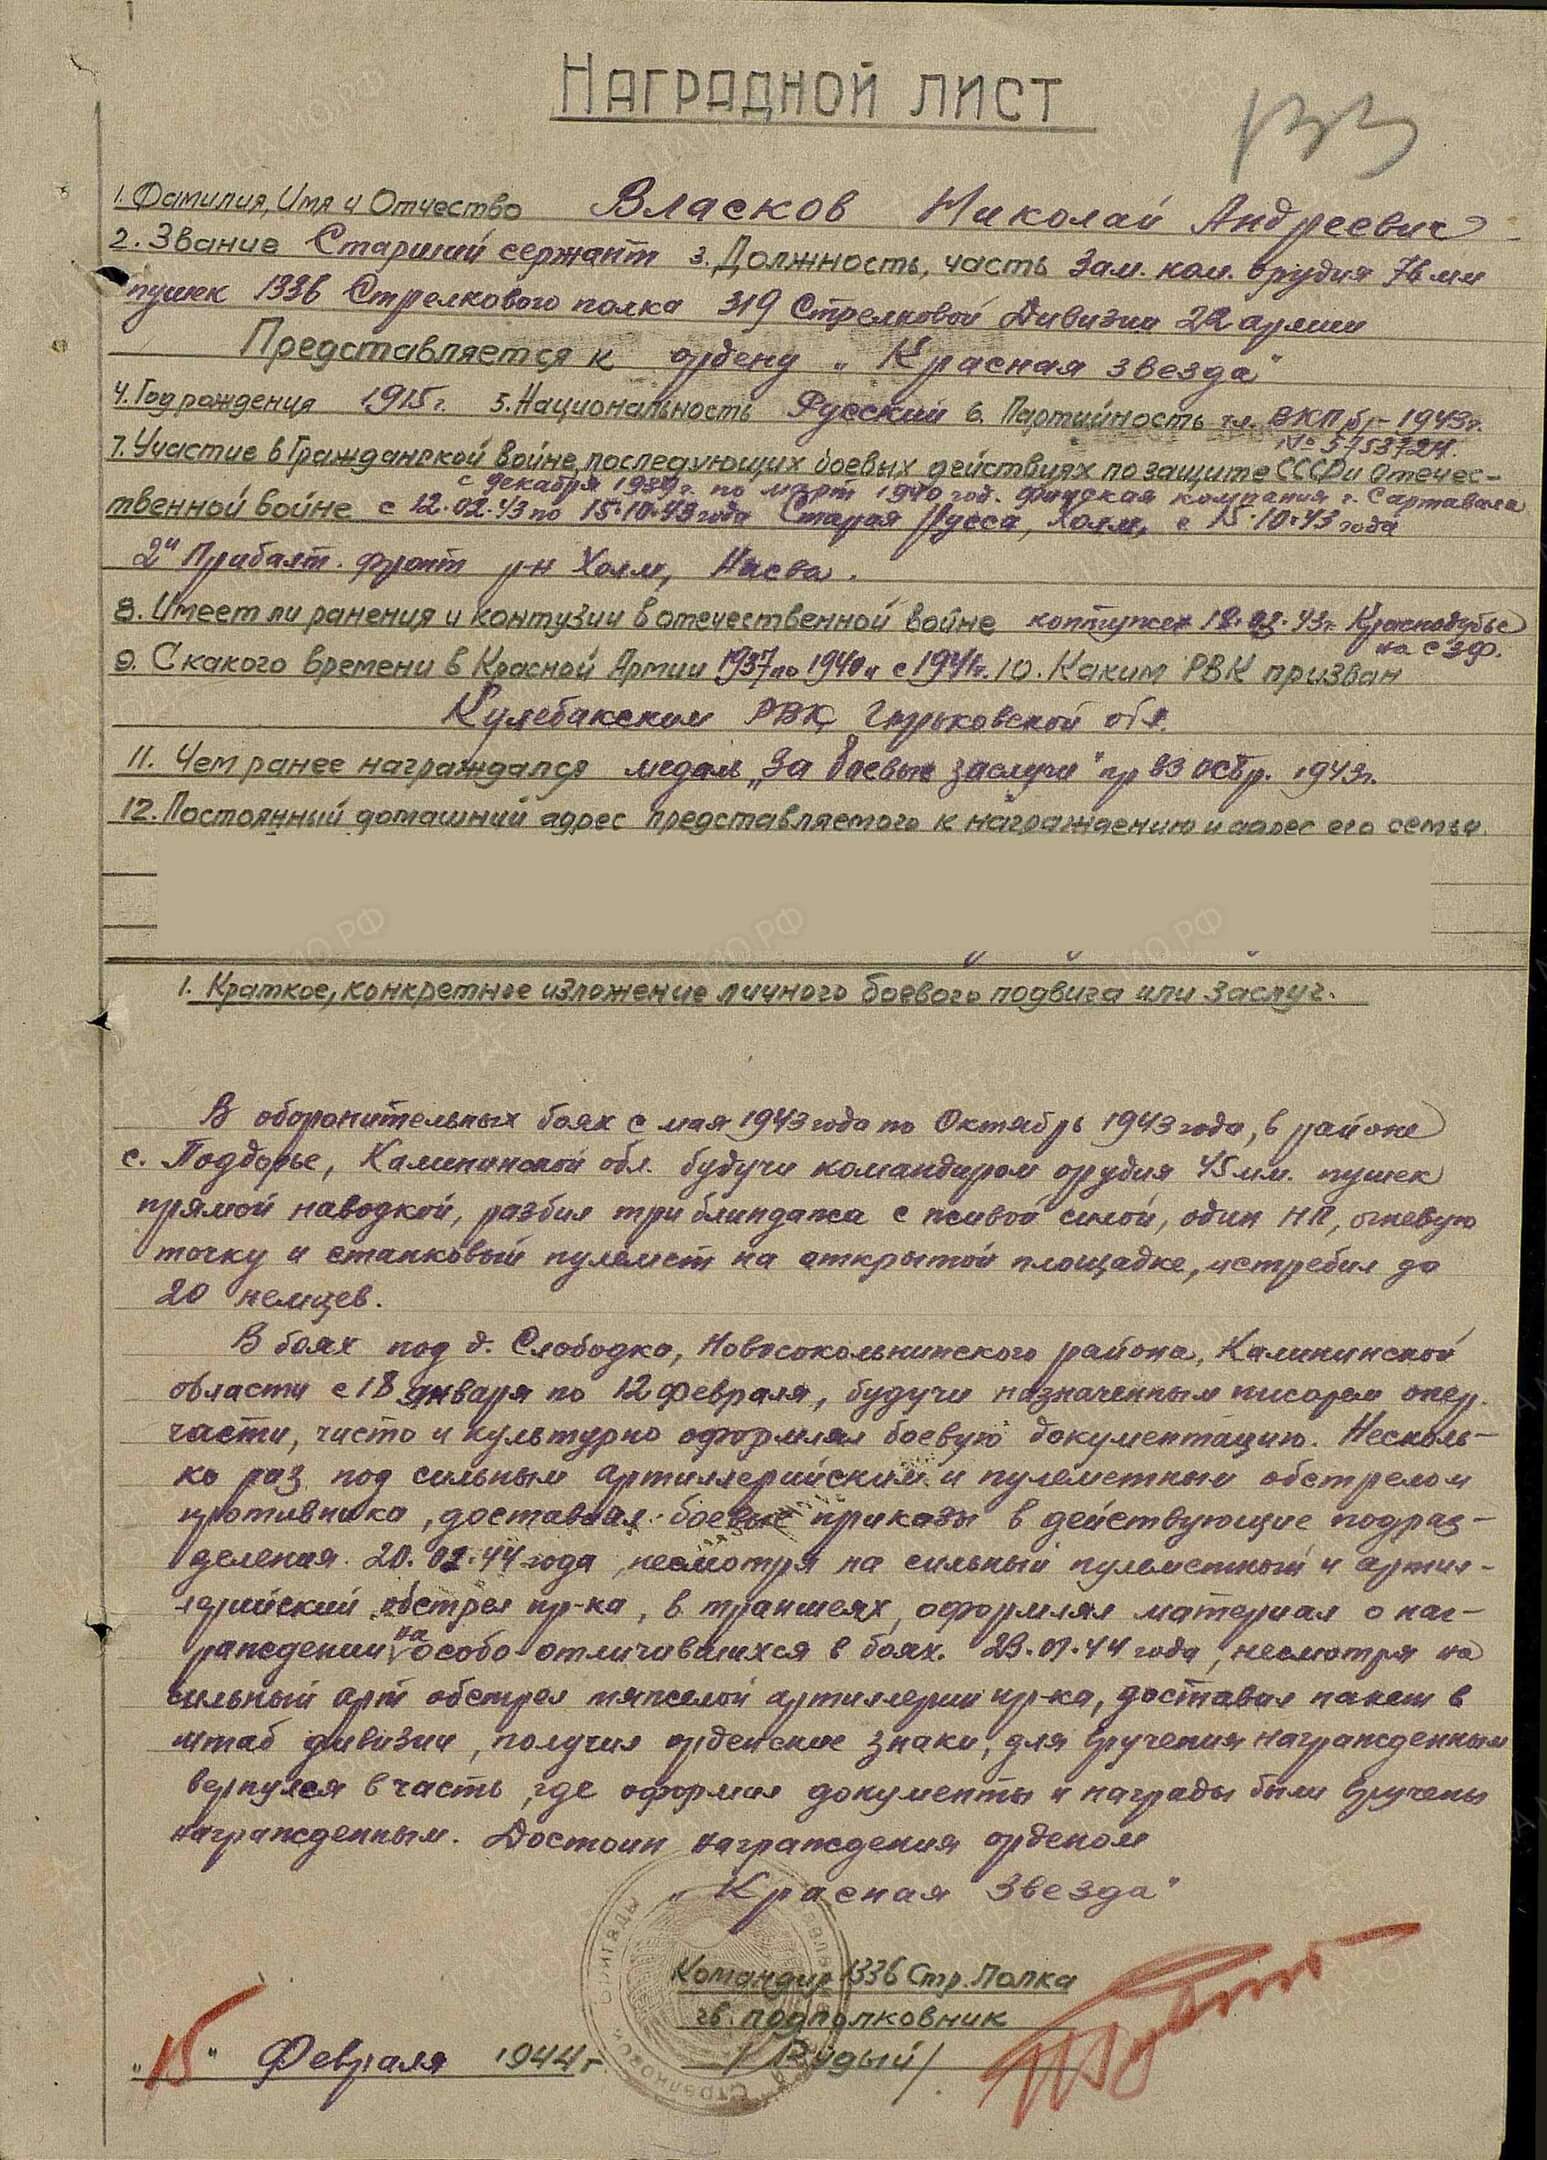 Наградной лист
1. Фамилия, Имя и Отчество Власков Николай Андреевич
2. Звание Старший сержант 3. Должность, часть Зам. ком. орудия 76 мм
пушек 1336 Стрелкового полка 319 Стрелковой Дивизии 22 армии
Представляется к ордену „Красная звезда"
4. Год рождения 1915 г. 5. Национальность Русский 6. Партийность чл. ВКПб - 1943 г.
№ 5753724.
7. Участие в Гражданской войне, последующих боевых действиях по защите СССР и отечес-
с декабря 1939 г. по март 1940 год. Финская компания г. Сартавала
твенной войне с 12.02.43 по 15.10.43 года Старая Русса, Холм, с 15.10.43 года
2й Прибалт. фронт р-н Холм, Насва.
8. Имеет ли ранения и контузии в отечественной войне контужен 18.02.43 г. Краснодубье
на СЗФ.
9. С какого времени в Красной Армии 1937 по 1940 и с 1941 г. 10. Каким РВК призван
Кулебакским РВК, Горьковской обл.
11. Чем ранее награждался медаль „За боевые заслуги" пр 1943 г.
12. Постоянный домашний адрес представляемого к награждению и адрес его семьи.
1. Краткое, конкретное изложение личного боевого подвига или заслуг.
В оборонительных боях с мая 1943 года по Октябрь 1943 года, в районе
с. Подборье, Калининской обл. будучи командиром орудия 45 мм. пушек
прямой наводкой, разбил три блиндажа с живой силой, один НП, огневую
точку и станковый пулемет на открытой площадке, истребил до
20 немцев.
В боях под д. Слободка, Новосокольнинского района, Калининской
области с 18 января по 12 февраля, будучи назначенным писарем опер.
части, чисто и культурно оформлял боевую документацию. Несколь-
ко раз под сильным артиллерийским и пулеметным обстрелом
противника, доставлял боевые приказы в действующие подраз-
деления. 20.01.44 года, несмотря на сильный пулеметный и артил-
лерийский обстрел пр-ка, в траншеях, оформлял материал о наг-
раждении на особо отличившихся в боях. 23.01.44 года, несмотря на
сильный арт обстрел тяжелой артиллерии пр-ка, доставил пакет в
штаб дивизии, получил орденские знаки, для вручения награжденным
вернулся в часть, где оформил документы и награды были вручены
награжденным. Достоин награждения орденом
„Красная Звезда"
Командир 1336 Стр. Полка
гв. подполковник
/Рудый/
„15" Февраля 1944 г